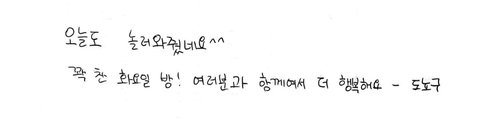 오늘도 놀러와줬네요^^
꽉 찬 화요일 밤! 여러분과 함께여서 더 행복해요 - 도도구